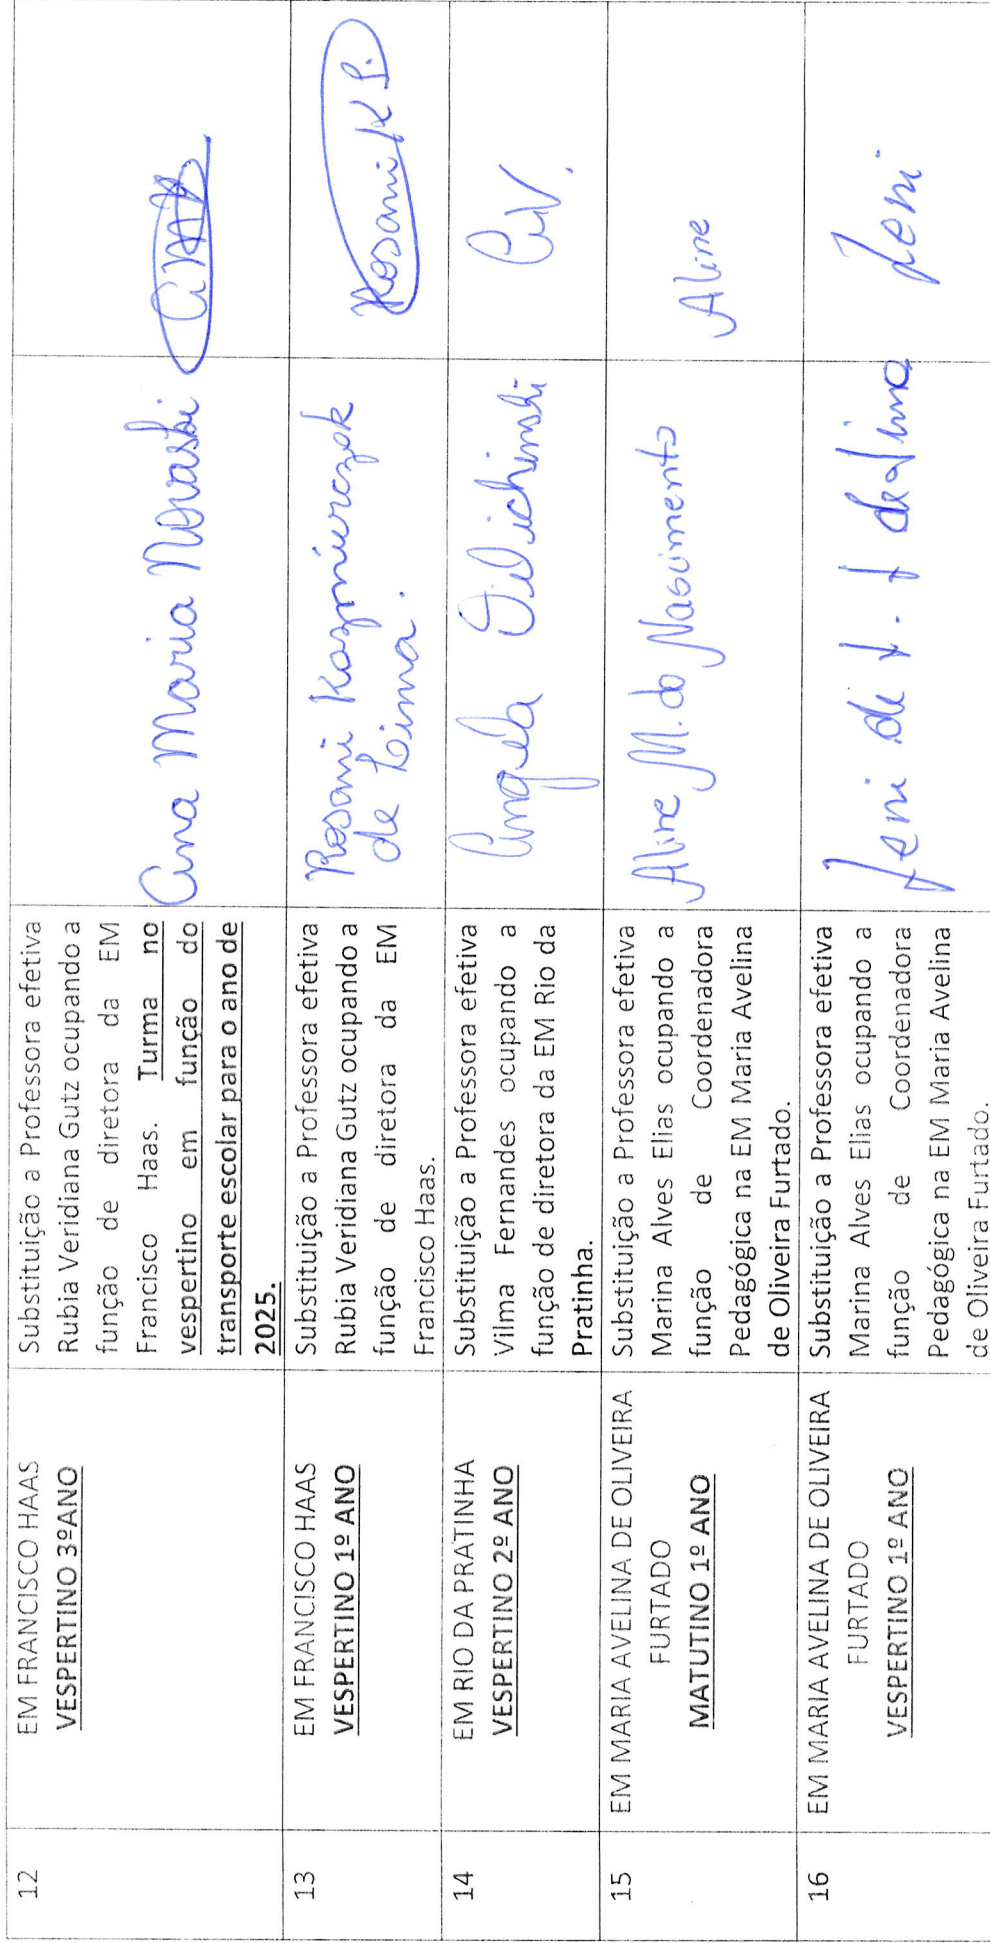 12
EM FRANCISCO HAAS
VESPERTINO 3ºANO
Substituição a Professora efetiva
Rubia Veridiana Gutz ocupando a
função de diretora da EM
Francisco Haas. Turma no
vespertino em função do
transporte escolar para o ano de
2025.
Ana Maria Novaski
13
EM FRANCISCO HAAS
VESPERTINO 1º ANO
Substituição a Professora efetiva
Rubia Veridiana Gutz ocupando a
função de diretora da EM
Francisco Haas.
Rosani Kazmirczak
de Lima.
Rosani K L.
14
EM RIO DA PRATINHA
VESPERTINO 2º ANO
Substituição a Professora efetiva
Vilma Fernandes ocupando a
função de diretora da EM Rio da
Pratinha.
Angela
15
EM MARIA AVELINA DE OLIVEIRA
FURTADO
MATUTINO 1º ANO
Substituição a Professora efetiva
Marina Alves Elias ocupando a
função de Coordenadora
Pedagógica na EM Maria Avelina
de Oliveira Furtado.
Aline M. do Nascimento
Aline
16
EM MARIA AVELINA DE OLIVEIRA
FURTADO
VESPERTINO 1º ANO
Substituição a Professora efetiva
Marina Alves Elias ocupando a
função de Coordenadora
Pedagógica na EM Maria Avelina
de Oliveira Furtado.
de Lima